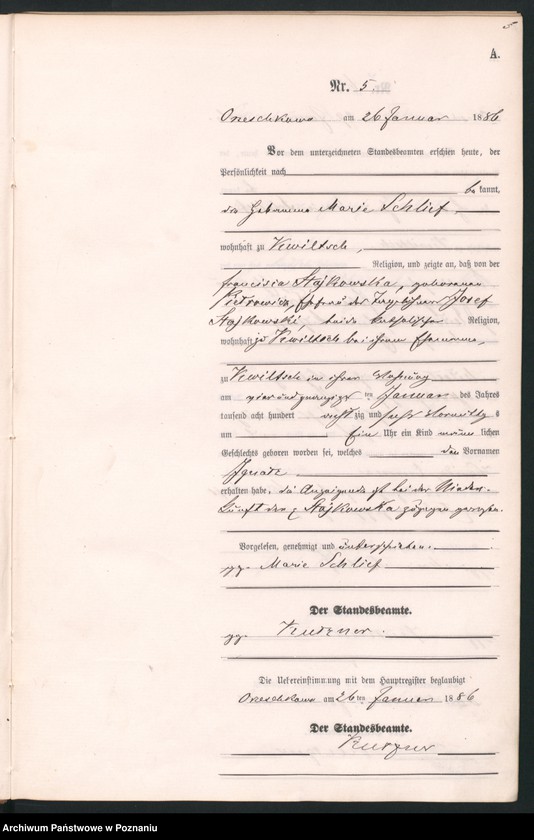 5
A.
Nr. 5
Orzeschkowo am 26 Januar 1886
Vor dem unterzeichneten Standesbeamten erschien heute, der
Persönlichkeit nach
bekannt,
die Hebamme Marie Schlief
wohnhaft zu Kwiltsch,
Religion, und zeigte an, daß von der
Francisca Stajkowska, geborenen
Pietrowicz, Ehefrau des Tagelöhners Josef
Stajkowski, beide katholischer Religion,
wohnhaft zu Kwiltsch bei ihrem Ehemanne,
zu Kwiltsch in ihrer Wohnung
am vier und zwanzigsten Januar des Jahres
tausend acht hundert achtzig und sechs Vormittags
um Ein Uhr ein Kind männlichen
Geschlechts geboren worden sei, welches den Vornamen
Ignatz
erhalten habe, die Anzeigende ist bei der Nieder-
kunft der Stajkowska zugegen gewesen.
Vorgelesen, genehmigt und unterschrieben.
gez. Marie Schlief
Der Standesbeamte.
gez. Kutzner.
Die Uebereinstimmung mit dem Hauptregister beglaubigt
Orzeschkowo am 26ten Januar 1886
Der Standesbeamte.
Kutzner
Archiwum Państwowe w Poznaniu